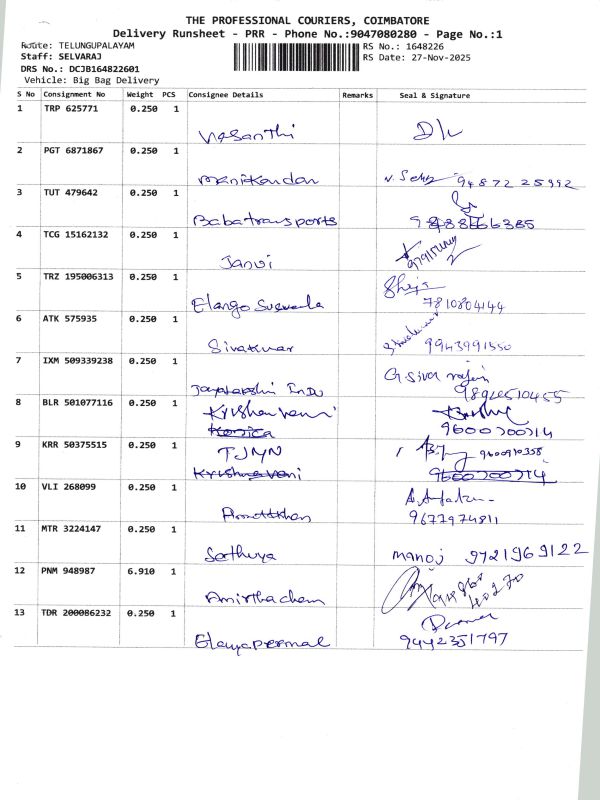 THE PROFESSIONAL COURIERS, COIMBATORE
Delivery Runsheet - PRR - Phone No.:9047080280 - Page No.:1
Route: TELUNGUPALAYAM
RS No.: 1648226
Staff: SELVARAJ
RS Date: 27-Nov-2025
DRS No.: DCJB164822601
Vehicle: Big Bag Delivery
S No Consignment No Weight PCS Consignee Details Remarks Seal & Signature
1 TRP 625771 0.250 1
Vasanthi
2 PGT 6871867 0.250 1
Manikandan 94872 25992
3 TUT 479642 0.250 1
Babatransports
4 TCG 15162132 0.250 1
Janvi
5 TRZ 195006313 0.250 1
Elango 7810804144
6 ATK 575935 0.250 1
Sivakumar 9943991550
7 IXM 509339238 0.250 1
G. Siva
8 BLR 501077116 0.250 1
Krishnaveni
Konica 9600700714
9 KRR 50375515 0.250 1
TJMN
Krishnaveni 9600700714
10 VLI 268099 0.250 1
9677974811
11 MTR 3224147 0.250 1
Sathuya manoj 9721969122
12 PNM 948987 6.910 1
Amirtha chem
13 TDR 200086232 0.250 1
Elayapermal 9442351797